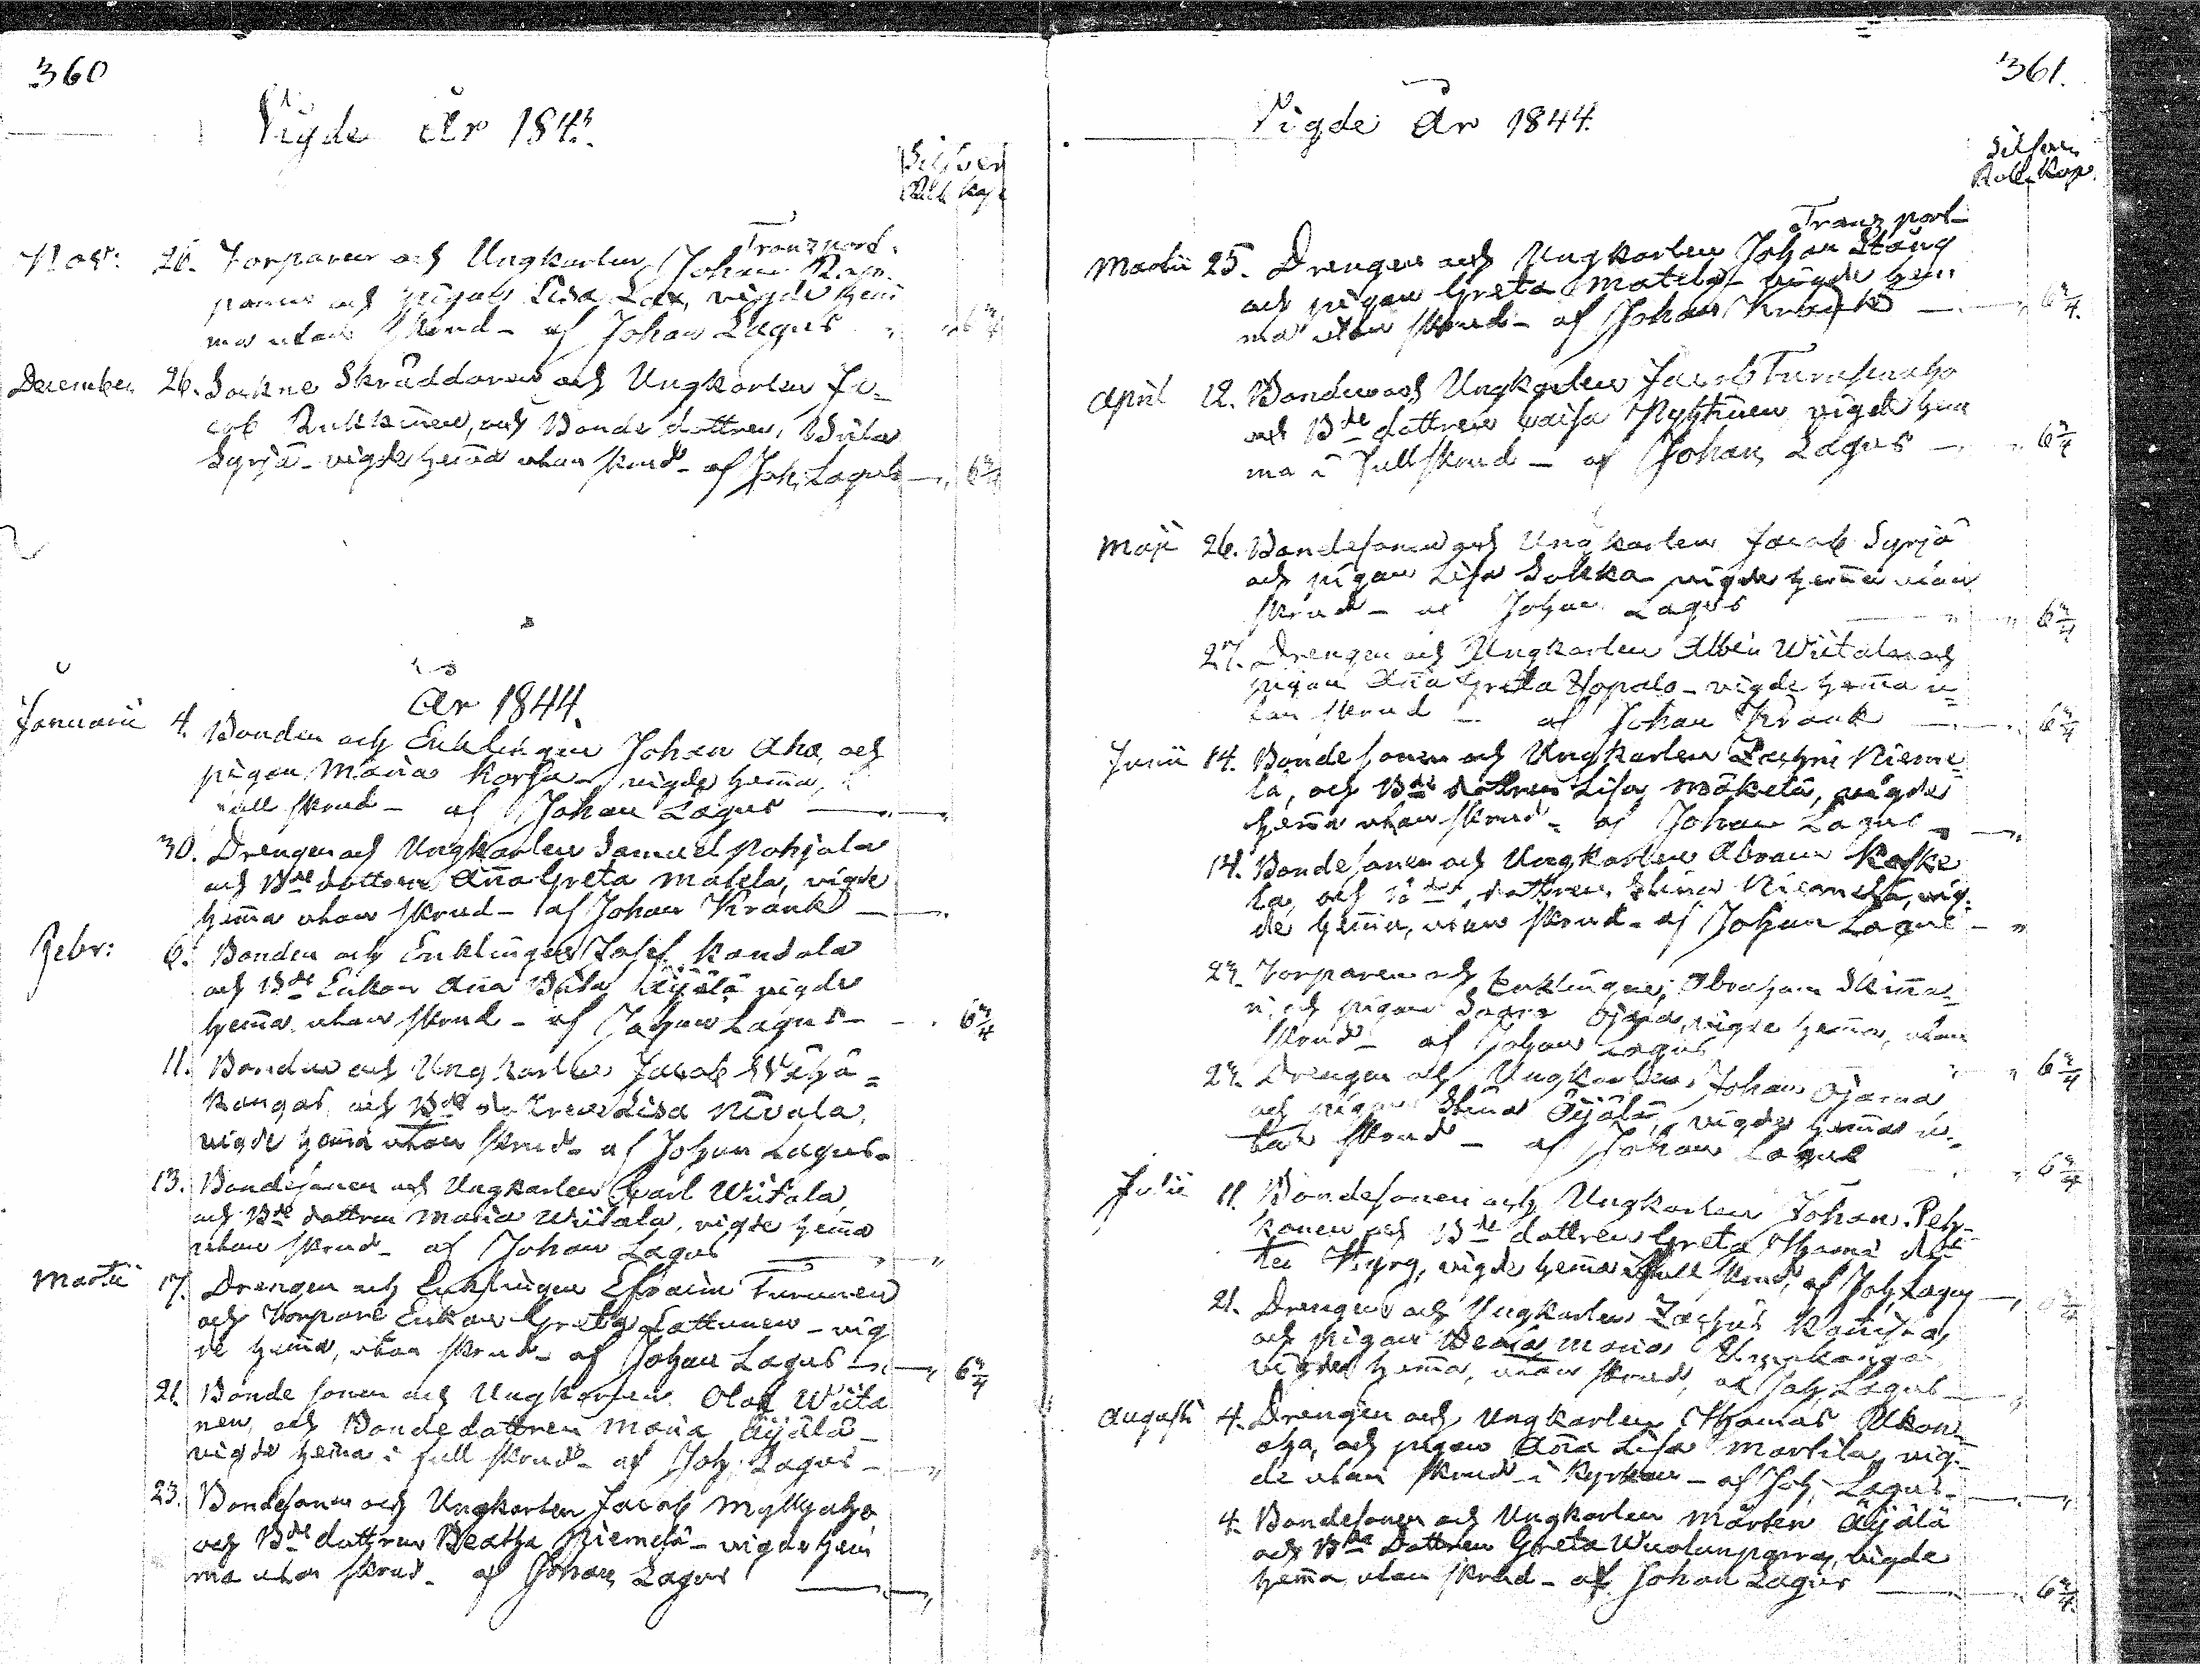 360
Vigde år 184
Silfver
Rub. Kop.
Transport.
Nov: 26. Torparen och Ungkarlen Johan
och pigan Lisa vigde hem
ma utan skrud - af Johan Lagus 6 3/4
December 26. Sockne Skräddaren och Ungkarlen Ja-
cob och Bonde dottren,
Syrjä - vigde hemma utan skrud - af Joh. Lagus 6
År 1844.
Januarii 4. Bonden och Enklingen Johan Aho, och
pigan Maria vigde hemma,
full skrud - af Johan Lagus
30. Drengen och Ungkarlen Samuel Pohjala
och Bde dottren Anna Greta Matela, vigde
hemma utan skrud - af Johan Krank
Febr: 6. Bonden och Enklingen Josef Kandola
och Bde Enkan Anna Äijälä vigde
hemma utan skrud - af Johan Lagus - 6 3/4
11. Bonden och Ungkarlen Jacob Wähä=
kangas, och Bde dottren Lisa Nivala,
vigde hemma utan skrud - af Johan Lagus -
13. Bondesonen och Ungkarlen Carl Wiitala,
och Bde dottren Maria Wiitala, vigde hemma
utan skrud - af Johan Lagus
Martii 17. Drengen och Enklingen Efraim Turunen
och Torpare Enkan Greta Lattunen - vig
de hemma, utan skrud - af Johan Lagus - 6 3/4
21. Bonde sonen och Ungkarlen Olof Wiita
nen, och Bondedottren Maria Äijälä -
vigde hemma i full skrud - af Joh. Lagus -
23. Bondesonen och Ungkarlen Jacob Myllyaho
och Bde dottren Beatha Niemelä - vigde hem
ma utan skrud - af Johan Lagus
361.
Vigde År 1844.
Silfver
Rub. Kop.
Transport
Martii 25. Drengen och Ungkarlen Johan Stång
och pigan Greta Matela - vigde hem
ma utan skrud - af Johan Krank 6 3/4
April 12. Bonden och Ungkarlen Jacob
och Bde dottren Caisa vigde hem
ma i full skrud - af Johan Lagus 6 3/4
Maji 26. Bondesonen och Ungkarlen Jacob Syrjä
och pigan Lisa Sokka vigde hemma utan
skrud - af Johan Lagus 6 3/4
27. Drengen och Ungkarlen Albin Wiitala och
pigan Anna Greta vigde hemma u=
tan skrud - af Johan Krank 6 3/4
Junii 14. Bondesonen och Ungkarlen Zachris Nieme=
lä, och Bde dottren Lisa Mäkelä, vigde
hemma utan skrud - af Johan Lagus
14. Bondesonen och Ungkarlen Abram Koske
la, och Bde dottren Stina Niemelä, vig=
de hemma, utan skrud - af Johan Lagus -
24. Torparen och Enklingen, Abraham
och pigan Ojana, vigde hemma, utan
skrud - af Johan Lagus 6 3/4
24. Drengen och Ungkarlen Johan Ojama
och pigan Stina Äijälä, vigde hemma u=
tan skrud - af Johan Lagus 6 3/4
Julii 11. Bondesonen och Ungkarlen Johan Pelt=
konen och Bde dottren Greta Thomæ dot
ter vigde hemma i full skrud, af Joh. Lagus
21. Drengen och Ungkarlen Zachris
och pigan Maria
vigde hemma, utan skrud, af Joh. Lagus -
Augusti 4. Drengen och Ungkarlen Thomas Ukon=
aho, och pigan Anna Lisa Martila, vig=
de utan skrud i Kyrkan - af Joh. Lagus -
4. Bondesonen och Ungkarlen Mårten Äijälä
och Bde Dottren Greta vigde
hemma utan skrud - af Johan Lagus 6 3/4